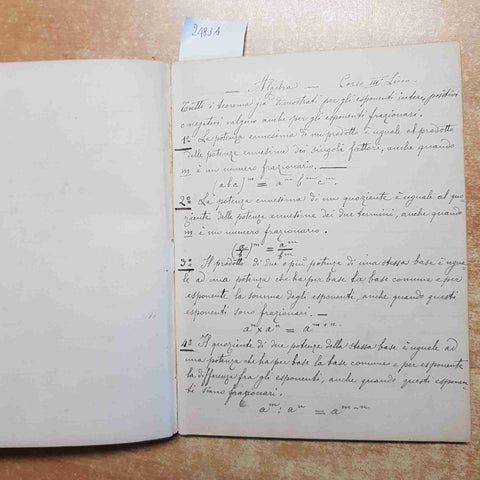 2483A
— Algebra — Corso III° Liceo.
Tutti i teoremi già dimostrati per gli esponenti interi, positivi
o negativi valgono anche per gli esponenti frazionari.
1° La potenza ennesima di un prodotto è uguale al prodotto
delle potenze ennesime dei singoli fattori, anche quando
m è un numero frazionario. —
(abc)^m = a^m b^m c^m.
2° La potenza ennesima di un quoziente è uguale al quo-
ziente delle potenze ennesime dei due termini, anche quando
m è un numero frazionario.
(a/b)^m = a^m/b^m
3° Il prodotto di due o più potenze di una stessa base è ugua-
le ad una potenza che ha per base la base comune e per
esponente la somma degli esponenti, anche quando questi
esponenti sono frazionari. —
a^m × a^n = a^m+n.
4° Il quoziente di due potenze della stessa base è uguale ad
una potenza che ha per base la base comune e per esponente
la differenza fra gli esponenti, anche quando questi esponen-
ti siano frazionari.
a^m : a^n = a^m-n